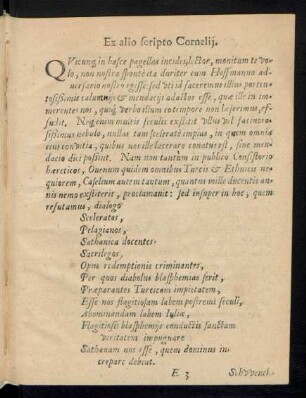 Ex alio scripto Cornelij.
QVicunq; in hasce pagellas incides, lector, monitum te volo, non nostra sponte ita duriter cum Hoffmanno adversario nostro egisse: sed vti id faceremus illius portentosissimis calumnijs & mendacijs adactos esse, quæ ille in immerentes nos, quiq; verbo illum eo tempore non læserimus, effudit.
Neq; enim multis seculis extitit vllus vel facinorosissimus nebulo, nullas tam scelerate impius, in quem omnia eius convitia, quibus nos elleborare conatus est, sine mendacio dici possint.
Nam non tantum in publico Consistorio hæreticos, Quenum quidem omnibus Turcis & Ethnicis nequiorem, Caselium autem tantum, quantus mille ducentis annis nemo exstiterit, proclamavit: sed insuper in hoc, quem refutamus, dialogo
Sceleratos,
Pelagianos,
Sathanica docentes,
Sacrilegos,
Opus redemptionis criminantes,
Per quos diabolus blasphemias serit,
Præparantes Turcicam impietatem,
Esse nos flagitiosam labem postremi seculi,
Abominandam labem Juliæ,
Flagitiosis blasphemijs conductis sanctam
veritatem impugnare
Sathanam nos esse, quem dominus increpare debeat.
E 3
Schvvenck-